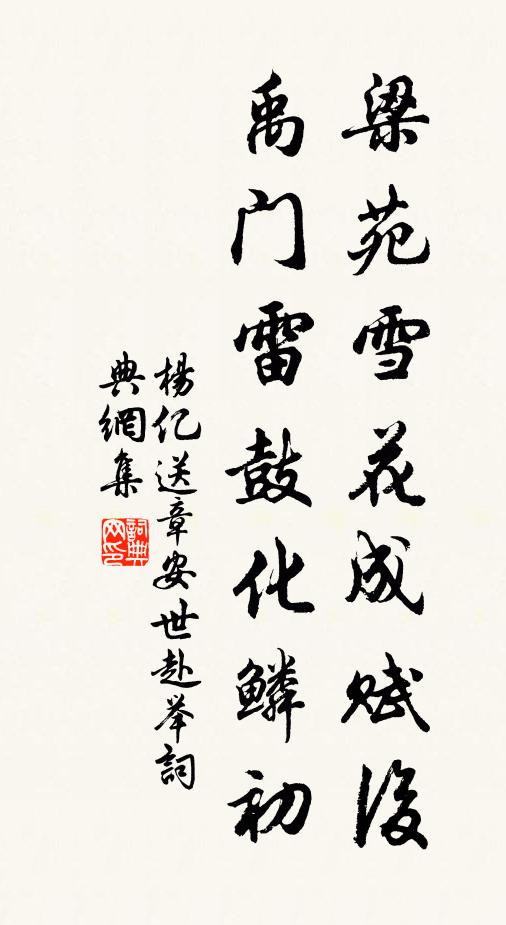 梁苑雪花成赋後
禹门雷鼓化鳞初
楊亿送章安世赴举詞
典網集
詞典网印